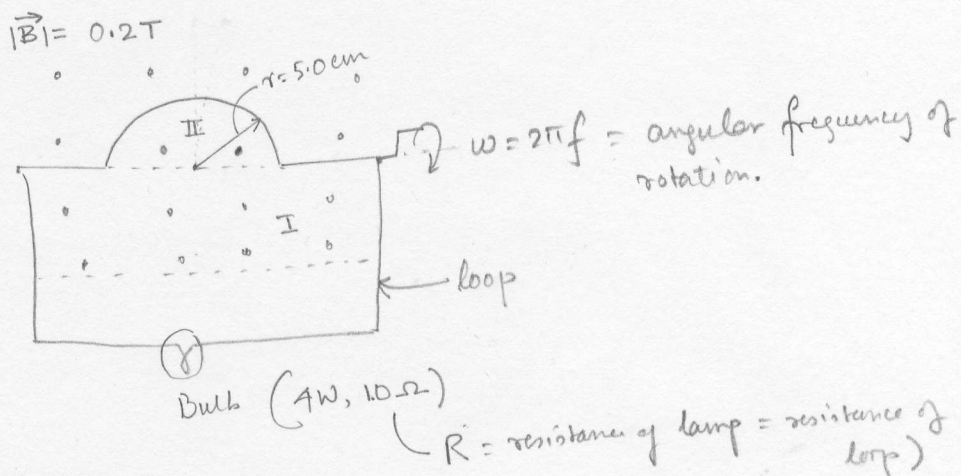 |B⃗| = 0.2T
r = 5.0cm
II
ω = 2πf = angular frequency of
rotation.
I
loop
Bulb (4W, 1.0Ω)
R = resistance of lamp = resistance of
loop)